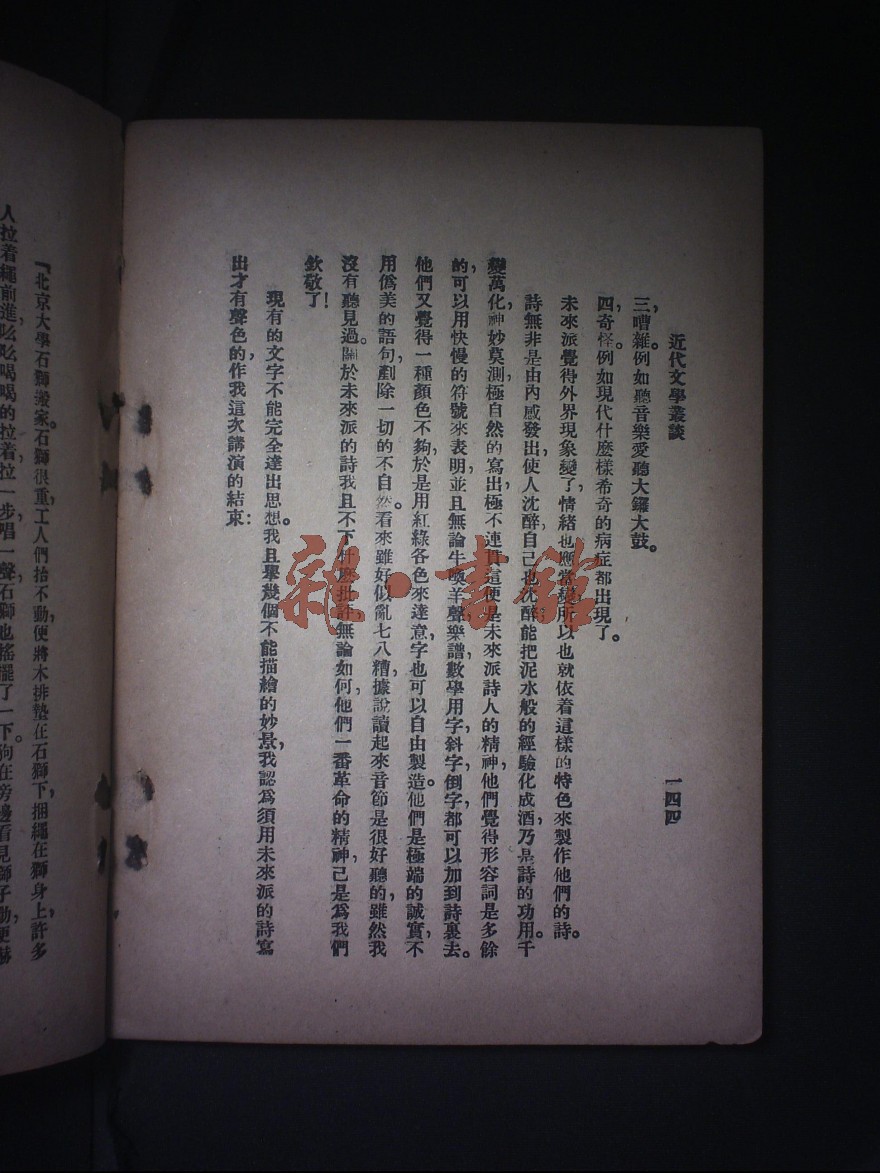 近代文學叢談
一四四
三，嘈雜。例如聽音樂愛聽大鑼大鼓。
四，奇怪。例如現代什麼樣希奇的病症都出現了。
未來派覺得外界現象變了，情緒也應當變所以也就依着這樣的特色來製作他們的詩。
詩無非是由內感發出，使人沈醉，自己也沈醉，能把泥水般的經驗化成酒，乃是詩的功用。千
變萬化，神妙莫測，極自然的寫出，極不連貫，這便是未來派詩人的精神，他們覺得形容詞是多餘
的，可以用快慢的符號來表明，並且無論牛喚羊聲，樂譜，數學用字，斜字，倒字，都可以加到詩裏去。
他們又覺得一種顏色不夠，於是用紅綠各色來達意，字也可以自由製造。他們是極端的誠實，不
用僞美的語句，剷除一切的不自然。看來雖好似亂七八糟，據說讀起來音節是很好聽的，雖然我
沒有聽見過。關於未來派的詩我且不下什麽批評，無論如何，他們一番革命的精神，已是爲我們
欽敬了！
現有的文字不能完全達出思想。我且舉幾個不能描繪的妙景，我認爲須用未來派的詩寫
出才有聲色的，作我這次講演的結束：
『北京大學石獅搬家。石獅很重，工人們抬不動，便將木排墊在石獅下，捆繩在獅身上，許多
人拉着繩前進，吆吆喝喝的拉着，拉一步，唱一聲，石獅也搖擺了一下。狗在旁邊看見獅子動，便嚇
雜·書館